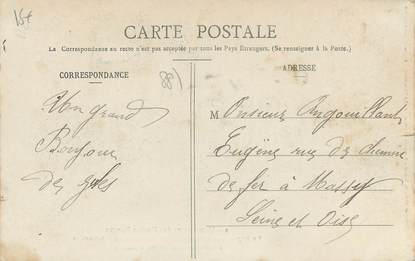 15€
CARTE POSTALE
La Correspondance au recto n'est pas acceptée par tous les Pays Etrangers. (Se renseigner à la Poste.)
CORRESPONDANCE
Un grand
Bonjour
de
ADRESSE
Monsieur Angouillant
Eugène rue de chemin
de fer à Massy
Seine et Oise